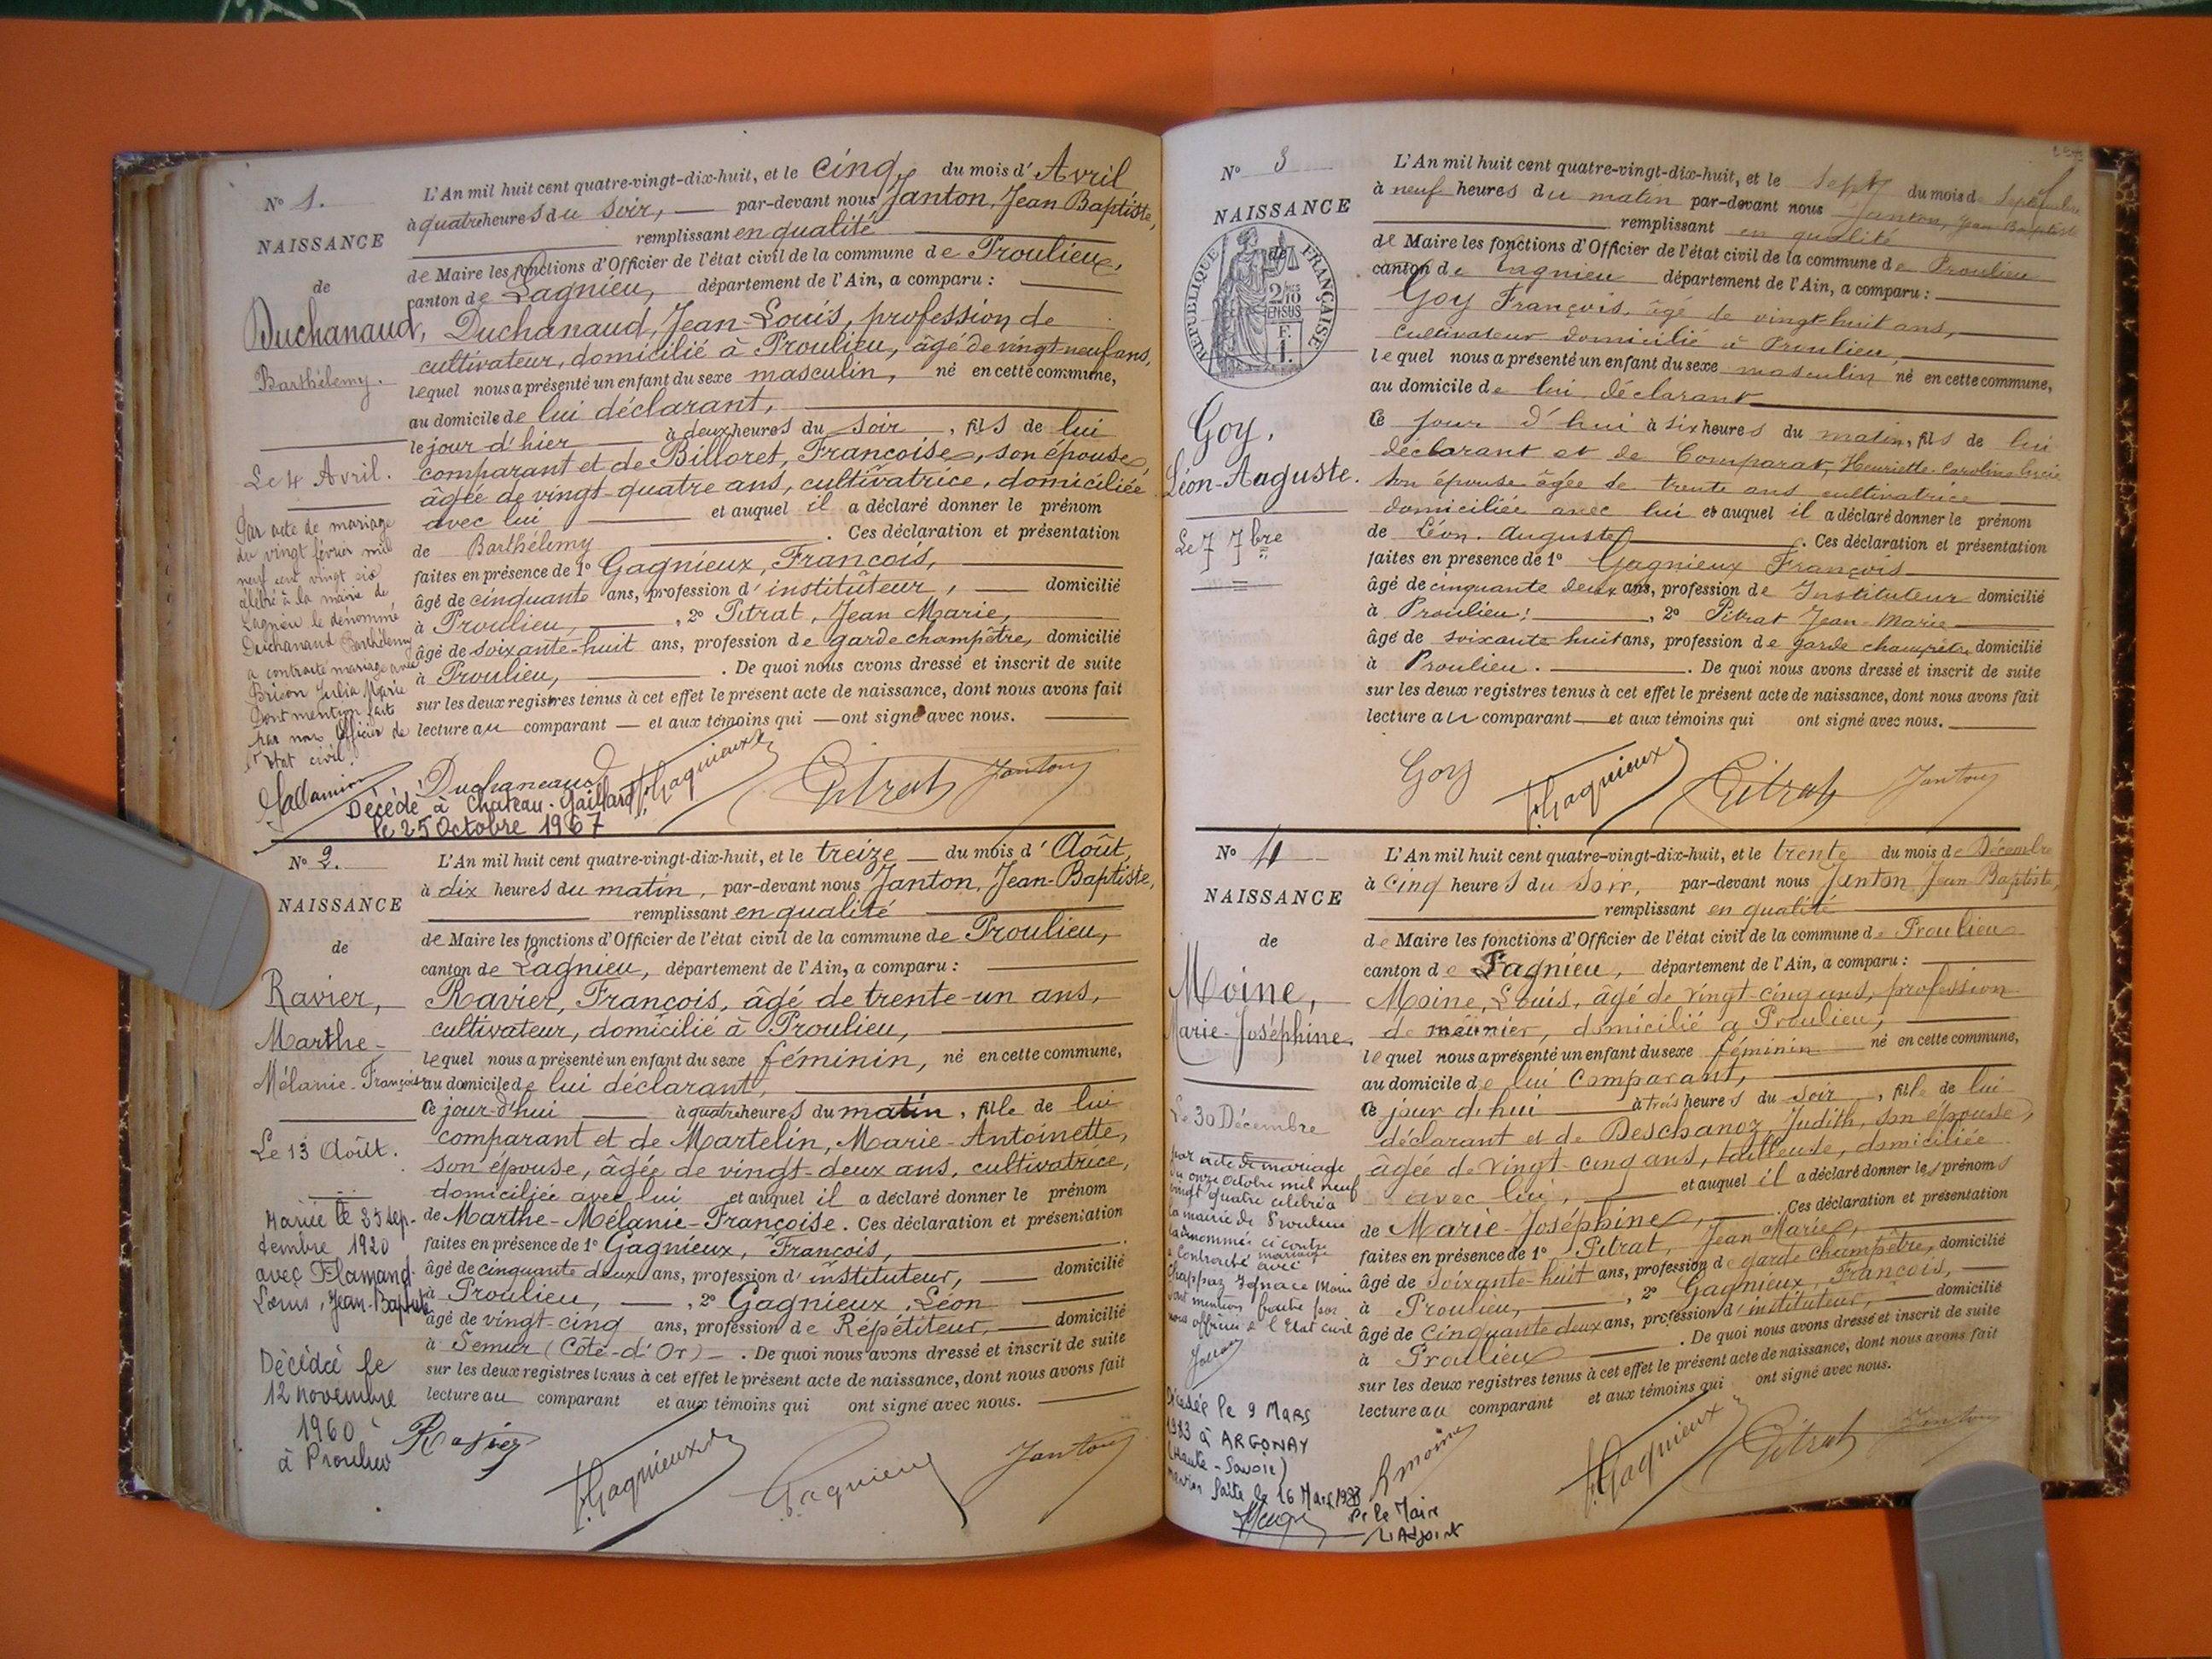 N° 1.
NAISSANCE
de
Duchanaud,
Barthélemy.
Le 4 Avril.
Par acte de mariage
du vingt février mil
neuf cent vingt six
célébré à la mairie de
Lagnieu le dénommé
Duchanaud Barthélemy
a contracté mariage avec
Brison Julia Marie
Dont mention faite
par nous Officier de
l'état civil.
L'An mil huit cent quatre-vingt-dix-huit, et le cinq du mois d'Avril,
à quatre heures du soir, par-devant nous Janton, Jean Baptiste,
remplissant en qualité
de Maire les fonctions d'Officier de l'état civil de la commune de Proulieu,
canton de Lagnieu, département de l'Ain, a comparu :
Duchanaud, Jean-Louis, profession de
cultivateur, domicilié à Proulieu, âgé de vingt-neuf ans,
lequel nous a présenté un enfant du sexe masculin, né en cette commune,
au domicile de lui déclarant,
le jour d'hier à deux heures du soir, fils de lui
comparant et de Billoret, Françoise, son épouse,
âgée de vingt-quatre ans, cultivatrice, domiciliée
avec lui et auquel il a déclaré donner le prénom
de Barthélemy. Ces déclaration et présentation
faites en présence de 1° Gagnieux, François,
âgé de cinquante ans, profession d'instituteur, domicilié
à Proulieu, 2° Pitrat, Jean Marie,
âgé de soixante-huit ans, profession de garde champêtre, domicilié
à Proulieu, . De quoi nous avons dressé et inscrit de suite
sur les deux registres tenus à cet effet le présent acte de naissance, dont nous avons fait
lecture au comparant et aux témoins qui ont signé avec nous.
Duchanaud F. Gagnieux Pitrat Janton
Décédé à Chateau-Gaillard
le 25 Octobre 1967
N° 2.
NAISSANCE
de
Ravier,
Marthe-
Mélanie-Françoise
Le 13 Août.
Mariée le 25 sep-
tembre 1920
avec Flamand
Louis, Jean-Baptiste
Décédée le
12 novembre
1960
à Proulieu
L'An mil huit cent quatre-vingt-dix-huit, et le treize du mois d'Août,
à dix heures du matin, par-devant nous Janton, Jean-Baptiste,
remplissant en qualité
de Maire les fonctions d'Officier de l'état civil de la commune de Proulieu,
canton de Lagnieu, département de l'Ain, a comparu :
Ravier, François, âgé de trente-un ans,
cultivateur, domicilié à Proulieu,
lequel nous a présenté un enfant du sexe féminin, né en cette commune,
au domicile de lui déclarant,
ce jour-d'hui à quatre heures du matin, fille de lui
comparant et de Martelin, Marie-Antoinette,
son épouse, âgée de vingt-deux ans, cultivatrice,
domiciliée avec lui et auquel il a déclaré donner le prénom
de Marthe-Mélanie-Françoise. Ces déclaration et présentation
faites en présence de 1° Gagnieux, François,
âgé de cinquante deux ans, profession d'instituteur, domicilié
à Proulieu, 2° Gagnieux, Léon
âgé de vingt-cinq ans, profession de Répétiteur, domicilié
à Semur (Côte-d'Or) . De quoi nous avons dressé et inscrit de suite
sur les deux registres tenus à cet effet le présent acte de naissance, dont nous avons fait
lecture au comparant et aux témoins qui ont signé avec nous.
Ravier F. Gagnieux Gagnieux Janton
N° 3
NAISSANCE
de
RÉPUBLIQUE FRANÇAISE
2/10 EN SUS
F. 1.
Goy,
Léon-Auguste.
Le 7 7bre
L'An mil huit cent quatre-vingt-dix-huit, et le sept du mois de Septembre
à neuf heures du matin par-devant nous Janton, Jean Baptiste
remplissant en qualité
de Maire les fonctions d'Officier de l'état civil de la commune de Proulieu
canton de Lagnieu département de l'Ain, a comparu :
Goy François, âgé de vingt huit ans,
cultivateur domicilié à Proulieu,
lequel nous a présenté un enfant du sexe masculin né en cette commune,
au domicile de lui déclarant
ce jour d'hui à six heures du matin, fils de lui
déclarant et de Comparat, Henriette-Caroline-Lucie
son épouse âgée de trente ans cultivatrice
domiciliée avec lui et auquel il a déclaré donner le prénom
de Léon. Auguste. Ces déclaration et présentation
faites en presence de 1° Gagnieux François
âgé de cinquante deux ans, profession de Instituteur domicilié
à Proulieu, 2° Pitrat Jean-Marie
âgé de soixante huit ans, profession de garde champêtre domicilié
à Proulieu. . De quoi nous avons dressé et inscrit de suite
sur les deux registres tenus à cet effet le présent acte de naissance, dont nous avons fait
lecture au comparant et aux témoins qui ont signé avec nous.
Goy F. Gagnieux Pitrat Janton
N° 4
NAISSANCE
de
Moine,
Marie-Joséphine.
Le 30 Décembre
par acte de mariage
du onze octobre mil neuf
vingt quatre célébré a
la mairie de Proulieu
la dénommée ci contre
a contracté mariage avec
Chappaz Ignace
dont mention faite par
nous officier de l'Etat civil
Décédée le 9 Mars
1983 à ARGONAY
(Haute-Savoie)
mention faite le 16 Mars 1983
Pr le Maire
L'Adjoint
L'An mil huit cent quatre-vingt-dix-huit, et le trente du mois de Décembre
à cinq heures du soir, par-devant nous Janton Jean Baptiste,
remplissant en qualité
de Maire les fonctions d'Officier de l'état civil de la commune de Proulieu
canton de Lagnieu, département de l'Ain, a comparu :
Moine, Louis, âgé de vingt-cinq ans, profession
de meunier, domicilié a Proulieu,
lequel nous a présenté un enfant du sexe féminin né en cette commune,
au domicile de lui comparant,
ce jour d'hui à trois heures du soir, fille de lui
déclarant et de Deschanoz, Judith, son épouse,
âgée de vingt-cinq ans, tailleuse, domiciliée
avec lui, et auquel il a déclaré donner les prénoms
de Marie-Joséphine, . Ces déclaration et présentation
faites en présence de 1° Pitrat, Jean Marie,
âgé de soixante-huit ans, profession de garde champêtre, domicilié
à Proulieu, 2° Gagnieux, François,
âgé de cinquante deux ans, profession d'instituteur, domicilié
à Proulieu . De quoi nous avons dressé et inscrit de suite
sur les deux registres tenus à cet effet le présent acte de naissance, dont nous avons fait
lecture au comparant et aux témoins qui ont signé avec nous.
L. Moine F. Gagnieux Pitrat Janton